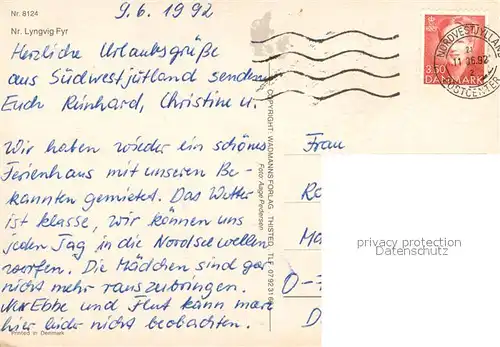 Nr. 8124
Nr. Lyngvig Fyr
9.6.1992
Herzliche Urlaubsgrüße
aus Südwestjütland senden
Euch Reinhard, Christine u.
Wir haben wieder ein schönes
Ferienhaus mit unseren Be-
kannten gemietet. Das Wetter
ist klasse, wir können uns
jeden Tag in die Nordseewellen
werfen. Die Mädchen sind gar
nicht mehr rauszubringen.
Ebbe und Flut kann man
hier leider nicht beobachten.
Printed in Denmark
COPYRIGHT: WADMANNS FORLAG, THISTED, TLF. 07923169
Foto: Aage Pedersen
NORDVESTJYLLAND
11.06.92
POSTCENTER
3.50
DANMARK
Frau
Re
Ma
O-7
D
privacy protection
Datenschutz